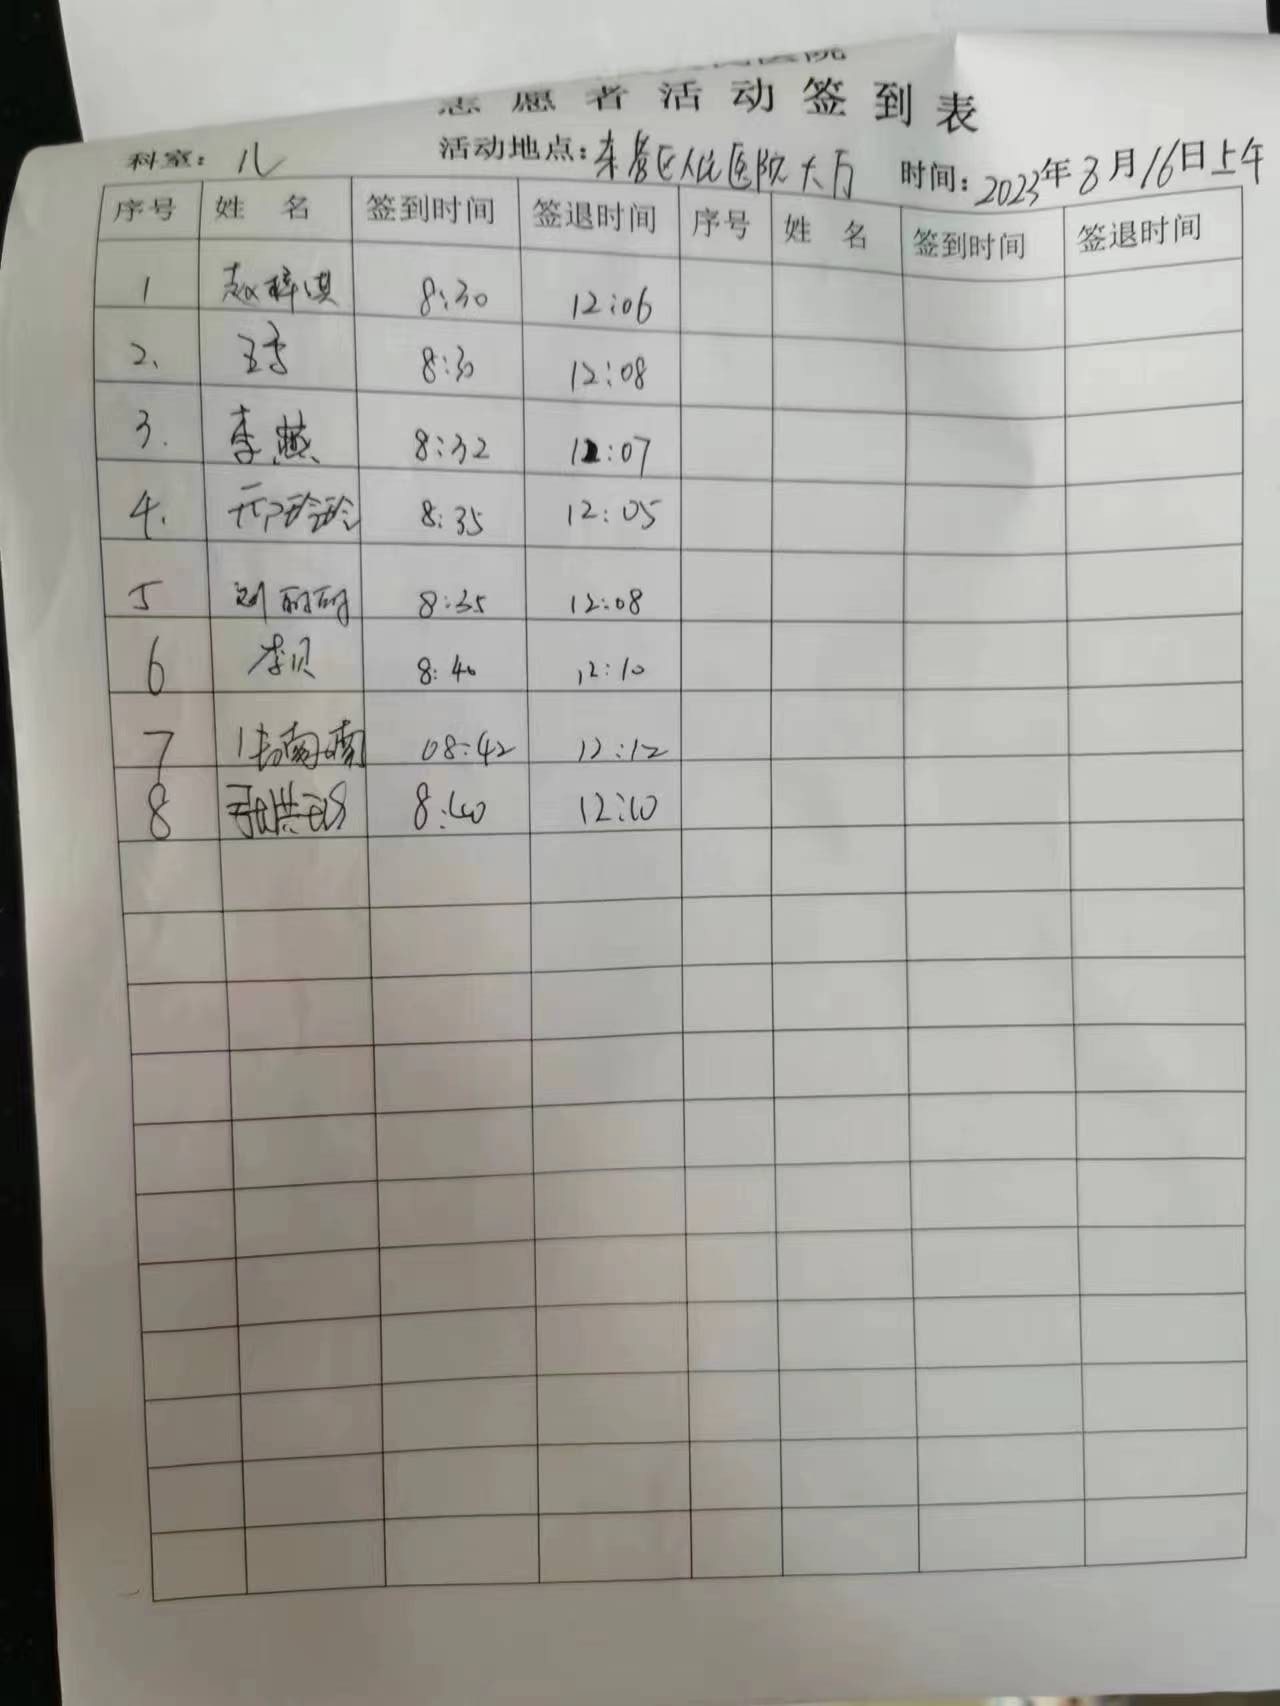 医院
志愿者活动签到表
科室：儿 活动地点：东营区人民医院大厅 时间：2023年8月16日上午
序号 姓 名 签到时间 签退时间 序号 姓 名 签到时间 签退时间
1 赵梓淇 8:30 12:06
2、 8:30 12:08
3. 李燕 8:32 12:07
4. 8:35 12:05
5 刘丽丽 8:35 12:08
6 李贝 8:40 12:10
7 08:42 12:12
8 8:40 12:10